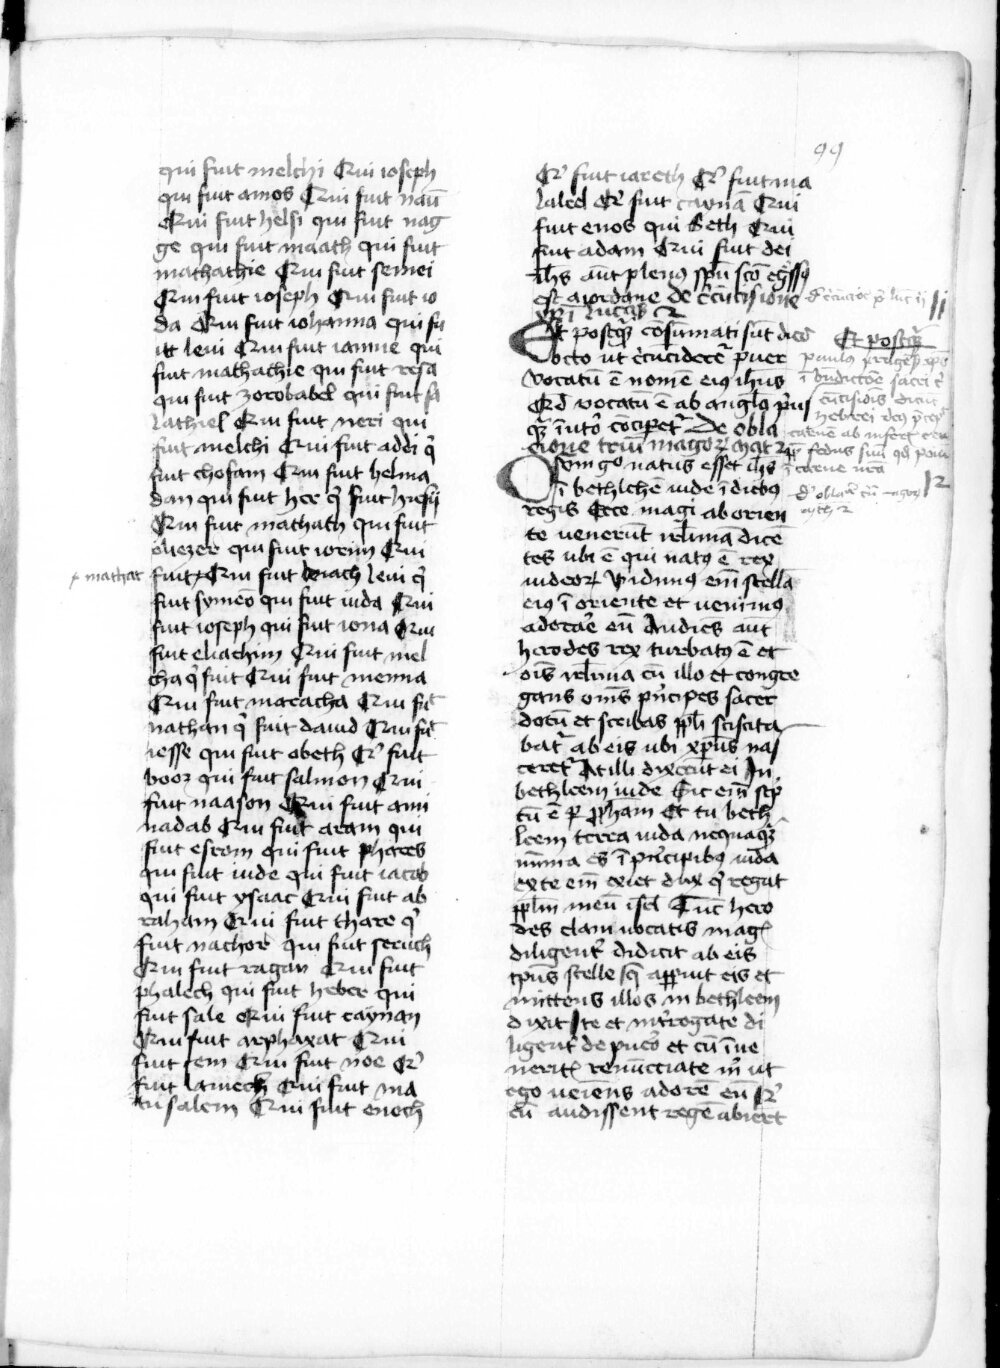 99
qui fuit melchi Qui ioseph
qui fuit amos Qui fuit naū
Qui fuit helsi qui fuit nag
ge qui fuit maath qui fuit
mathathie Qui fuit semei
Qui fuit ioseph Qui fuit io
da Qui fuit iohanna qui fu
it levi Qui fuit iamne qui
fuit mathathie qui fuit resa
qui fuit zorobabel qui fuit sa
lathiel Qui fuit neri qui
fuit melchi Qui fuit addi q̇
fuit chosam Qui fuit helma
dan qui fuit her q̇ fuit
Qui fuit mathath qui fuit
eliezer qui fuit iorim Qui
mathat
fuit Qui fuit levi q̇
fuit symeō qui fuit iuda Qui
fuit ioseph qui fuit iona Qui
fuit eliachim Qui fuit mel
cha q̇ fuit Qui fuit menna
Qui fuit matacha Qui fu̾
nathan q̇ fuit david Qui fu̾
iesse qui fuit obeth Q̇ fuit
booz qui fuit salmon Qui
fuit naason Qui fuit ami
nadab Qui fuit aram qui
fuit esrom qui fuit phares
qui fuit iude qui fuit iacob
qui fuit ysaac Qui fuit ab
raham Qui fuit thare q̇
fuit nachor qui fuit seruch
Qui fuit ragau Qui fuit
phalech qui fuit heber qui
fuit sale Qui fuit caynan
Qui fuit arphaxat Qui
fuit sem Qui fuit noe Q̇
fuit lamech Qui fuit ma
tusalem Qui fuit enoch
Q̇ fuit iareth Q̇ fuit ma
laleel Q̇ fuit caynā Qui
fuit enos qui seth Qui
fuit adam Qui fuit dei
ih̄s aūt plenus sp̄u sc̄o eg̾ssꝰ
est a iordane De c̾cūcisione
Et postq̄ꝫ cōsūmati sūt dies
octo ut c̾cūcideret̾ puer
vocatū ē nomē eius ih̄us
Qd̄ vocatū ē ab angelo p̾us
q̄ꝫ ī ut̾o cōciperet̾ De obla
cione triū magoꝝ
Cum g̊ natus esset ih̄s
ī bethlehē iude ī diebꝰ
regis Ecce magi ab orien
te venerūt ierl̄imā dicē
tes ubi ē qui natꝰ ē rex
iudeoꝝ Vidimꝰ em̄ stellā
eiꝰ ī oriente et venimꝰ
adorare eū Audies aūt
herodes rex turbatꝰ ē et
oīs ierl̄ima cū illo et congre
gans om̄s p̾ncipes sacer
dotū et scribas pp̄li sciscita
bat̾ ab eis ubi xp̄us nas
ceret̾ At illi dixerūt ei In
bethleem iude Sic em̄ sc̾p
tū ē ꝑ ꝓphām Et tu beth
leem terra iuda nequaq̄ꝫ
minima es ī p̾ncipibꝰ iuda
ex te em̄ exiet dux q̇ regat
pp̄lm̄ meū isrl̄ Tūc hero
des clam vocatis mag̾
diligent̾ didicit ab eis
tp̄us stelle q̄ apparuit eis et
mittens illos in bethleem
dixit Ite et int̾rogate di
ligent̾ de puero et cū īve
nerit̾ renūcciate m̾ ut
ego veniens adorē eū Q̇
cū audissent regē abierūt
Et postq̄ꝫ